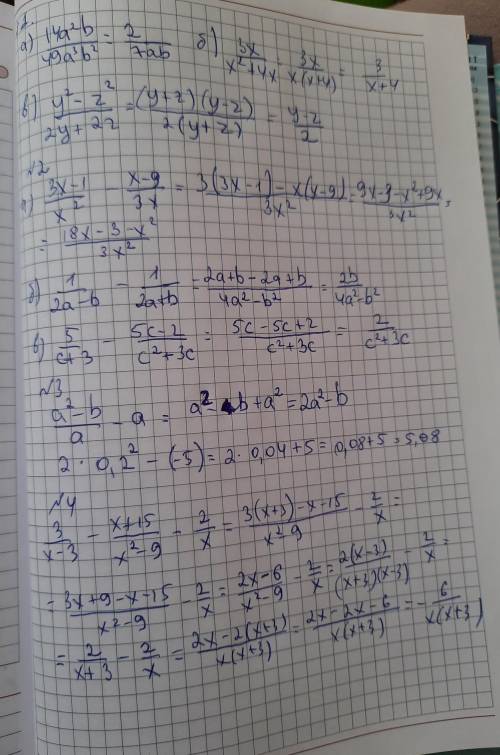 1.
а) 14a²b/49a³b² = 2/7ab б) 3x/x²+4x = 3x/x(x+4) = 3/x+4
в) y²-z²/2y+2z = (y+z)(y-z)/2(y+z) = y-z/2
№2
а) 3x-1/x² - x-9/3x = 3(3x-1)-x(x-9)/3x² = 9x-3-x²+9x/3x² =
= 18x-3-x²/3x²
б) 1/2a-b - 1/2a+b = 2a+b-2a+b/4a²-b² = 2b/4a²-b²
в) 5/c+3 - 5c-2/c²+3c = 5c-5c+2/c²+3c = 2/c²+3c
№3
a²-b/a - a = a²-b+a² = 2a²-b
2·0,2² - (-5) = 2·0,04+5 = 0,08+5 = 5,08
№4
3/x-3 - x+15/x²-9 - 2/x = 3(x+3)-x-15/x²-9 - 2/x =
= 3x+9-x-15/x²-9 - 2/x = 2x-6/x²-9 - 2/x = 2(x-3)/(x+3)(x-3) - 2/x =
= 2/x+3 - 2/x = 2x-2(x+3)/x(x+3) = 2x-2x-6/x(x+3) = -6/x(x+3)